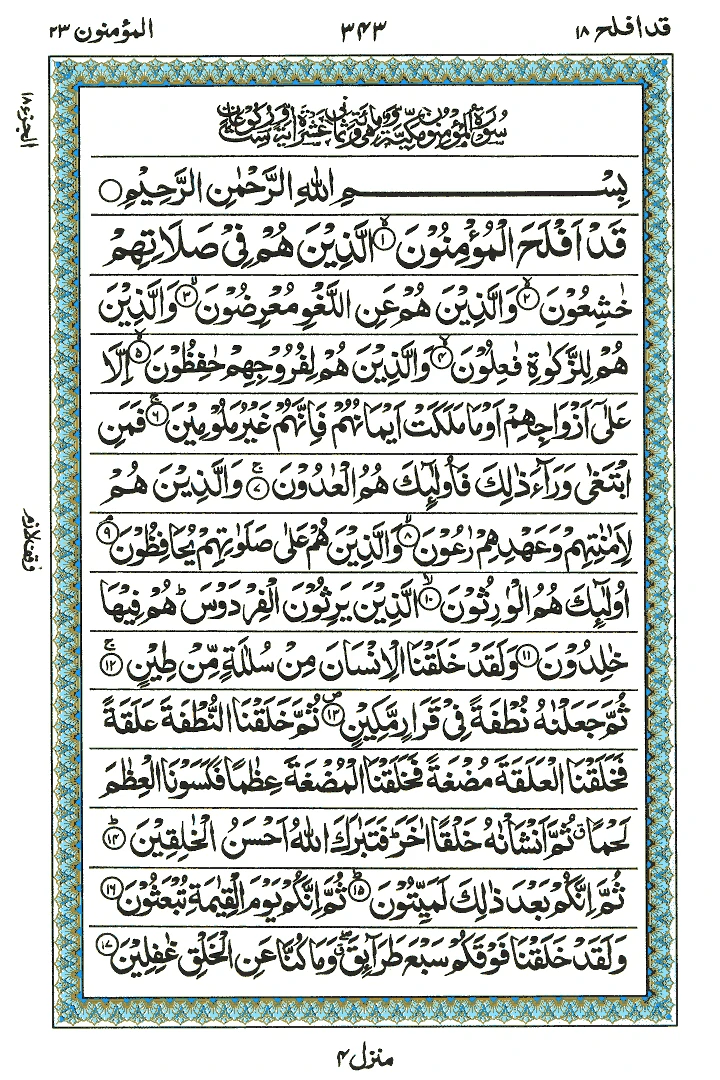 قد افلح ۱۸
۳۴۳
المؤمنون ۲۳
الجزء ۱۸
بِسْمِ اللّٰهِ الرَّحْمٰنِ الرَّحِيْمِ○
قَدْ اَفْلَحَ الْمُؤْمِنُوْنَ ۙ﴿۱﴾ الَّذِيْنَ هُمْ فِيْ صَلَاتِهِمْ
خٰشِعُوْنَ ۙ﴿۲﴾ وَالَّذِيْنَ هُمْ عَنِ اللَّغْوِ مُعْرِضُوْنَ ۙ﴿۳﴾ وَالَّذِيْنَ
هُمْ لِلزَّكٰوةِ فٰعِلُوْنَ ۙ﴿۴﴾ وَالَّذِيْنَ هُمْ لِفُرُوْجِهِمْ حٰفِظُوْنَ ۙ﴿۵﴾ اِلَّا
عَلٰٓى اَزْوَاجِهِمْ اَوْ مَا مَلَكَتْ اَيْمَانُهُمْ فَاِنَّهُمْ غَيْرُ مَلُوْمِيْنَ ۚ﴿۶﴾ فَمَنِ
ابْتَغٰى وَرَآءَ ذٰلِكَ فَاُولٰٓئِكَ هُمُ الْعٰدُوْنَ ۚ﴿۷﴾ وَالَّذِيْنَ هُمْ
لِاَمٰنٰتِهِمْ وَعَهْدِهِمْ رٰعُوْنَ ۙ﴿۸﴾ وَالَّذِيْنَ هُمْ عَلٰى صَلَوٰتِهِمْ يُحَافِظُوْنَ ۘ﴿۹﴾
وقف لازم
اُولٰٓئِكَ هُمُ الْوٰرِثُوْنَ ۙ﴿۱۰﴾ الَّذِيْنَ يَرِثُوْنَ الْفِرْدَوْسَ ؕ هُمْ فِيْهَا
خٰلِدُوْنَ ﴿۱۱﴾ وَلَقَدْ خَلَقْنَا الْاِنْسَانَ مِنْ سُلٰلَةٍ مِّنْ طِيْنٍ ۚ﴿۱۲﴾
ثُمَّ جَعَلْنٰهُ نُطْفَةً فِيْ قَرَارٍ مَّكِيْنٍ ۪﴿۱۳﴾ ثُمَّ خَلَقْنَا النُّطْفَةَ عَلَقَةً
فَخَلَقْنَا الْعَلَقَةَ مُضْغَةً فَخَلَقْنَا الْمُضْغَةَ عِظٰمًا فَكَسَوْنَا الْعِظٰمَ
لَحْمًا ۗ ثُمَّ اَنْشَاْنٰهُ خَلْقًا اٰخَرَ ؕ فَتَبٰرَكَ اللّٰهُ اَحْسَنُ الْخٰلِقِيْنَ ؕ﴿۱۴﴾
ثُمَّ اِنَّكُمْ بَعْدَ ذٰلِكَ لَمَيِّتُوْنَ ؕ﴿۱۵﴾ ثُمَّ اِنَّكُمْ يَوْمَ الْقِيٰمَةِ تُبْعَثُوْنَ ﴿۱۶﴾
وَلَقَدْ خَلَقْنَا فَوْقَكُمْ سَبْعَ طَرَآئِقَ ۖ وَمَا كُنَّا عَنِ الْخَلْقِ غٰفِلِيْنَ ﴿۱۷﴾
منزل ۴